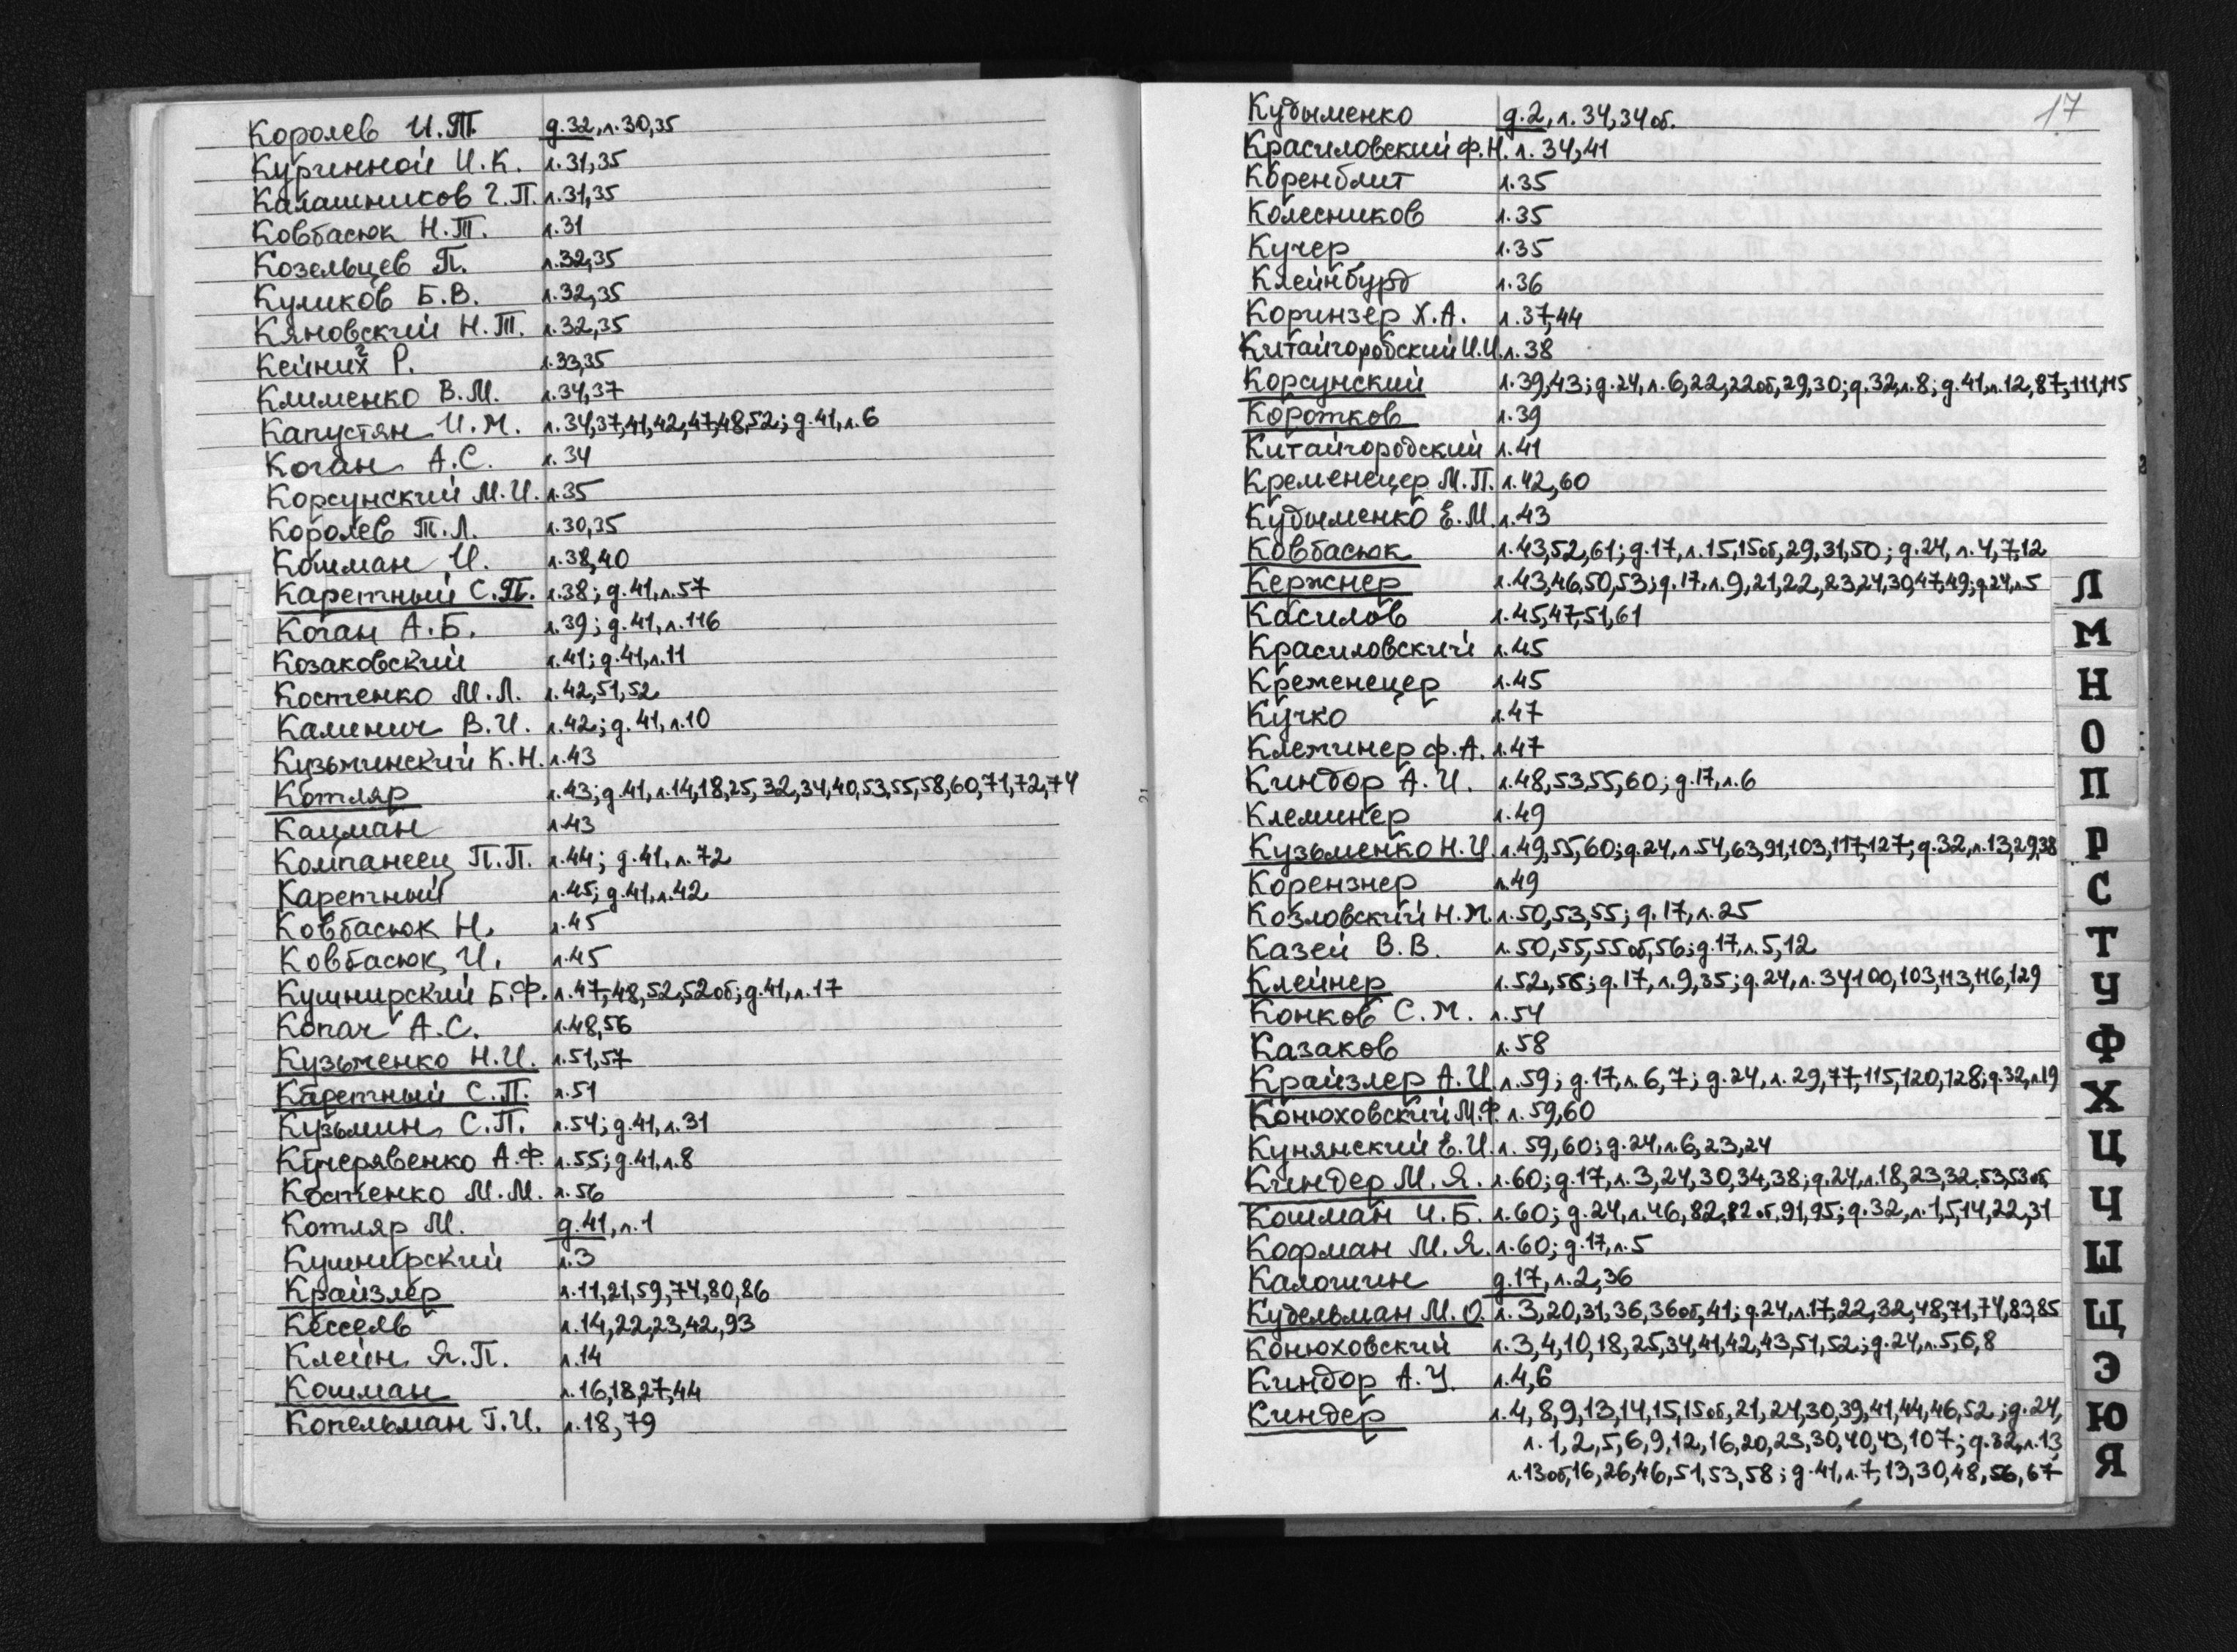 Королев И.Т. д.32, л.30,35
Куринной И.К. л.31,35
Калашников Г.П. л.31,35
Ковбасюк Н.Т. л.31
Козельцев П. л.32,35
Куликов Б.В. л.32,35
Кяновский Н.Т. л.32,35
Кейних Р. л.33,35
Клименко В.М. л.34,37
Капустян И.М. л.34,37,41,42,47,48,52; д.41, л.6
Коган А.С. л.34
Корсунский М.И. л.35
Королев Т.Л. л.30,35
Кошман И. л.38,40
Каретный С.П. л.38; д.41, л.57
Коган А.Б. л.39; д.41, л.116
Козаковский л.41; д.41, л.11
Костенко М.Л. л.42,51,52
Калинич В.И. л.42; д.41, л.10
Кузьминский К.Н. л.43
Котляр л.43; д.41, л.14,18,25,32,34,40,53,55,58,60,71,72,74
Кацман л.43
Компанеец П.П. л.44; д.41, л.72
Каретный л.45; д.41, л.42
Ковбасюк Н. л.45
Ковбасюк И. л.45
Кушнирский Б.Ф. л.47,48,52,52об; д.41, л.17
Копач А.С. л.48,56
Кузьменко Н.И. л.51,57
Каретный С.П. л.51
Кузьмин С.П. л.54; д.41, л.31
Кучерявенко А.Ф. л.55; д.41, л.8
Костенко М.М. л.56
Котляр М. д.41, л.1
Кушнирский л.3
Крайзлер л.11,21,59,74,80,86
Кессель л.14,22,23,42,93
Клейн Я.П. л.14
Кошман л.16,18,27,44
Копельман Г.И. л.18,79
17
Кудыменко д.2, л.34,34об.
Красиловский Ф.Н. л.34,41
Коренблит л.35
Колесников л.35
Кучер л.35
Клейнбурд л.36
Коринзер Х.А. л.37,44
Китайгородский И.И. л.38
Корсунский л.39,43; д.24, л.6,22,22об,29,30; д.32, л.8; д.41, л.12,87,111,115
Коротков л.39
Китайгородский л.41
Кременецер М.П. л.42,60
Кудыменко Е.М. л.43
Ковбасюк л.43,52,61; д.17, л.15,15об,29,31,50; д.24, л.4,7,12
Кержнер л.43,46,50,53; д.17, л.9,21,22,23,24,30,47,49; д.24, л.5
Касилов л.45,47,51,61
Красиловский л.45
Кременецер л.45
Кучко л.47
Клеминер Ф.А. л.47
Киндор А.И. л.48,53,55,60; д.17, л.6
Клеминер л.49
Кузьменко Н.И. л.49,55,60; д.24, л.54,63,91,103,117,127; д.32, л.13,29,38
Корензнер л.49
Козловский Н.М. л.50,53,55; д.17, л.25
Казей В.В. л.50,55,55об,56; д.17, л.5,12
Клейнер л.52,56; д.17, л.9,35; д.24, л.34,100,103,113,116,129
Конков С.М. л.54
Казаков л.58
Крайзлер А.И. л.59; д.17, л.6,7; д.24, л.29,77,115,120,128; д.32, л.19
Конюховский М.Ф. л.59,60
Кунянский Е.И. л.59,60; д.24, л.6,23,24
Киндер М.Я. л.60; д.17, л.3,24,30,34,38; д.24, л.18,23,32,53,53об,
Кошман И.Б. л.60; д.24, л.46,82,82об,91,95; д.32, л.1,5,14,22,31
Кофман М.Я. л.60; д.17, л.5
Калошин д.17, л.2,36
Кудельман М.О. л.3,20,31,36,36об,41; д.24, л.17,22,32,48,71,74,83,85
Конюховский л.3,4,10,18,25,34,41,42,43,51,52; д.24, л.5,6,8
Киндор А.У. л.4,6
Киндер л.4,8,9,13,14,15,15об,21,24,30,39,41,44,46,52; д.24,
л.1,2,5,6,9,12,16,20,23,30,40,43,107; д.32, л.13,
л.13об,16,26,46,51,53,58; д.41, л.7,13,30,48,56,67
Л
М
Н
О
П
Р
С
Т
У
Ф
Х
Ц
Ч
Ш
Щ
Э
Ю
Я